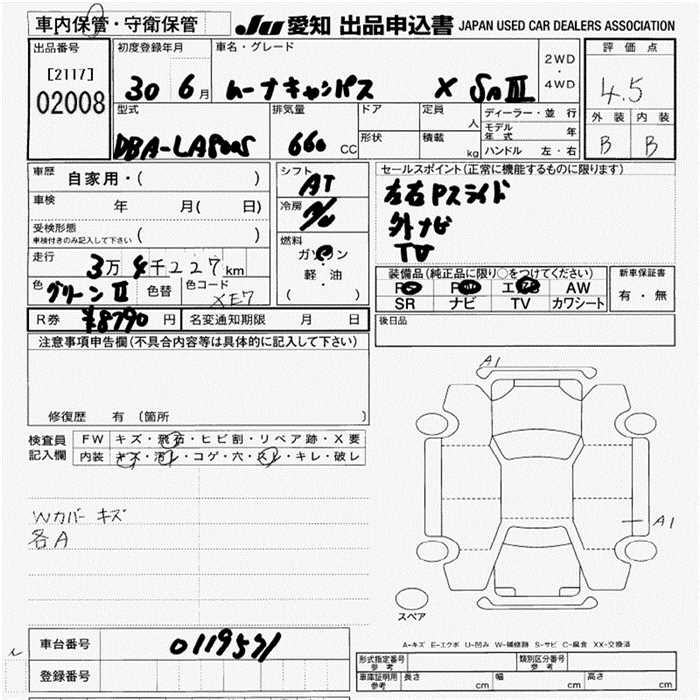 車内保管・守衛保管 JU 愛知 出品申込書 JAPAN USED CAR DEALERS ASSOCIATION
出品番号 初度登録年月 車名・グレード 2WD・4WD 評価点
[2117]
02008 30 6月 ムーヴキャンバス X SAⅢ 4.5
型式 排気量 ドア 定員 人 ディーラー・並行 外装 内装
DBA-LA800S 660 CC 形状 積載 kg モデル年式 年 B B
ハンドル 左・右
車歴 自家用・( ) シフト AT セールスポイント(正常に機能するものに限ります)
車検 年 月( 日) 冷房 左右Pスライド
受検形態 ( ) 外ナビ
車検付きのみ記入して下さい TV
走行 3万4千227km 燃料 ガソリン 軽・油 ( ) 装備品(純正品に限り○をつけてください) 新車保証書
色 グリーンⅡ 色替 色コード XE7 エ AW 有・無
SR ナビ TV カワシート
R券 ¥8790円 名変通知期限 月 日 後日品
注意事項申告欄(不具合内容等は具体的に記入して下さい)
修復歴 有 (箇所 )
検査員 FW キズ・飛石・ヒビ割・リペア跡・X要
記入欄 内装 キズ・汚レ・コゲ・穴・スレ・キレ・破レ
Wカバー キズ
各A
A1
A1
スペア
A-キズ E-エクボ U-凹み W-補修跡 S-サビ C-腐食 XX-交換済
車台番号 0119571
登録番号
形式指定番号 参考 類別区分番号 参考
車庫証明用 参考 長さ cm 幅 cm 高さ cm